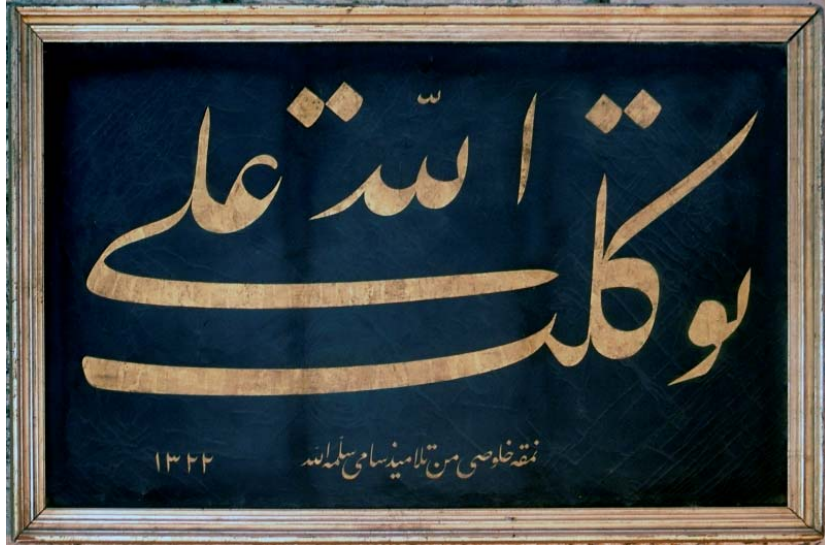 توكلت على الله
نمقه خلوصی من تلامیذ سامی سلمه الله
١٣٢٢